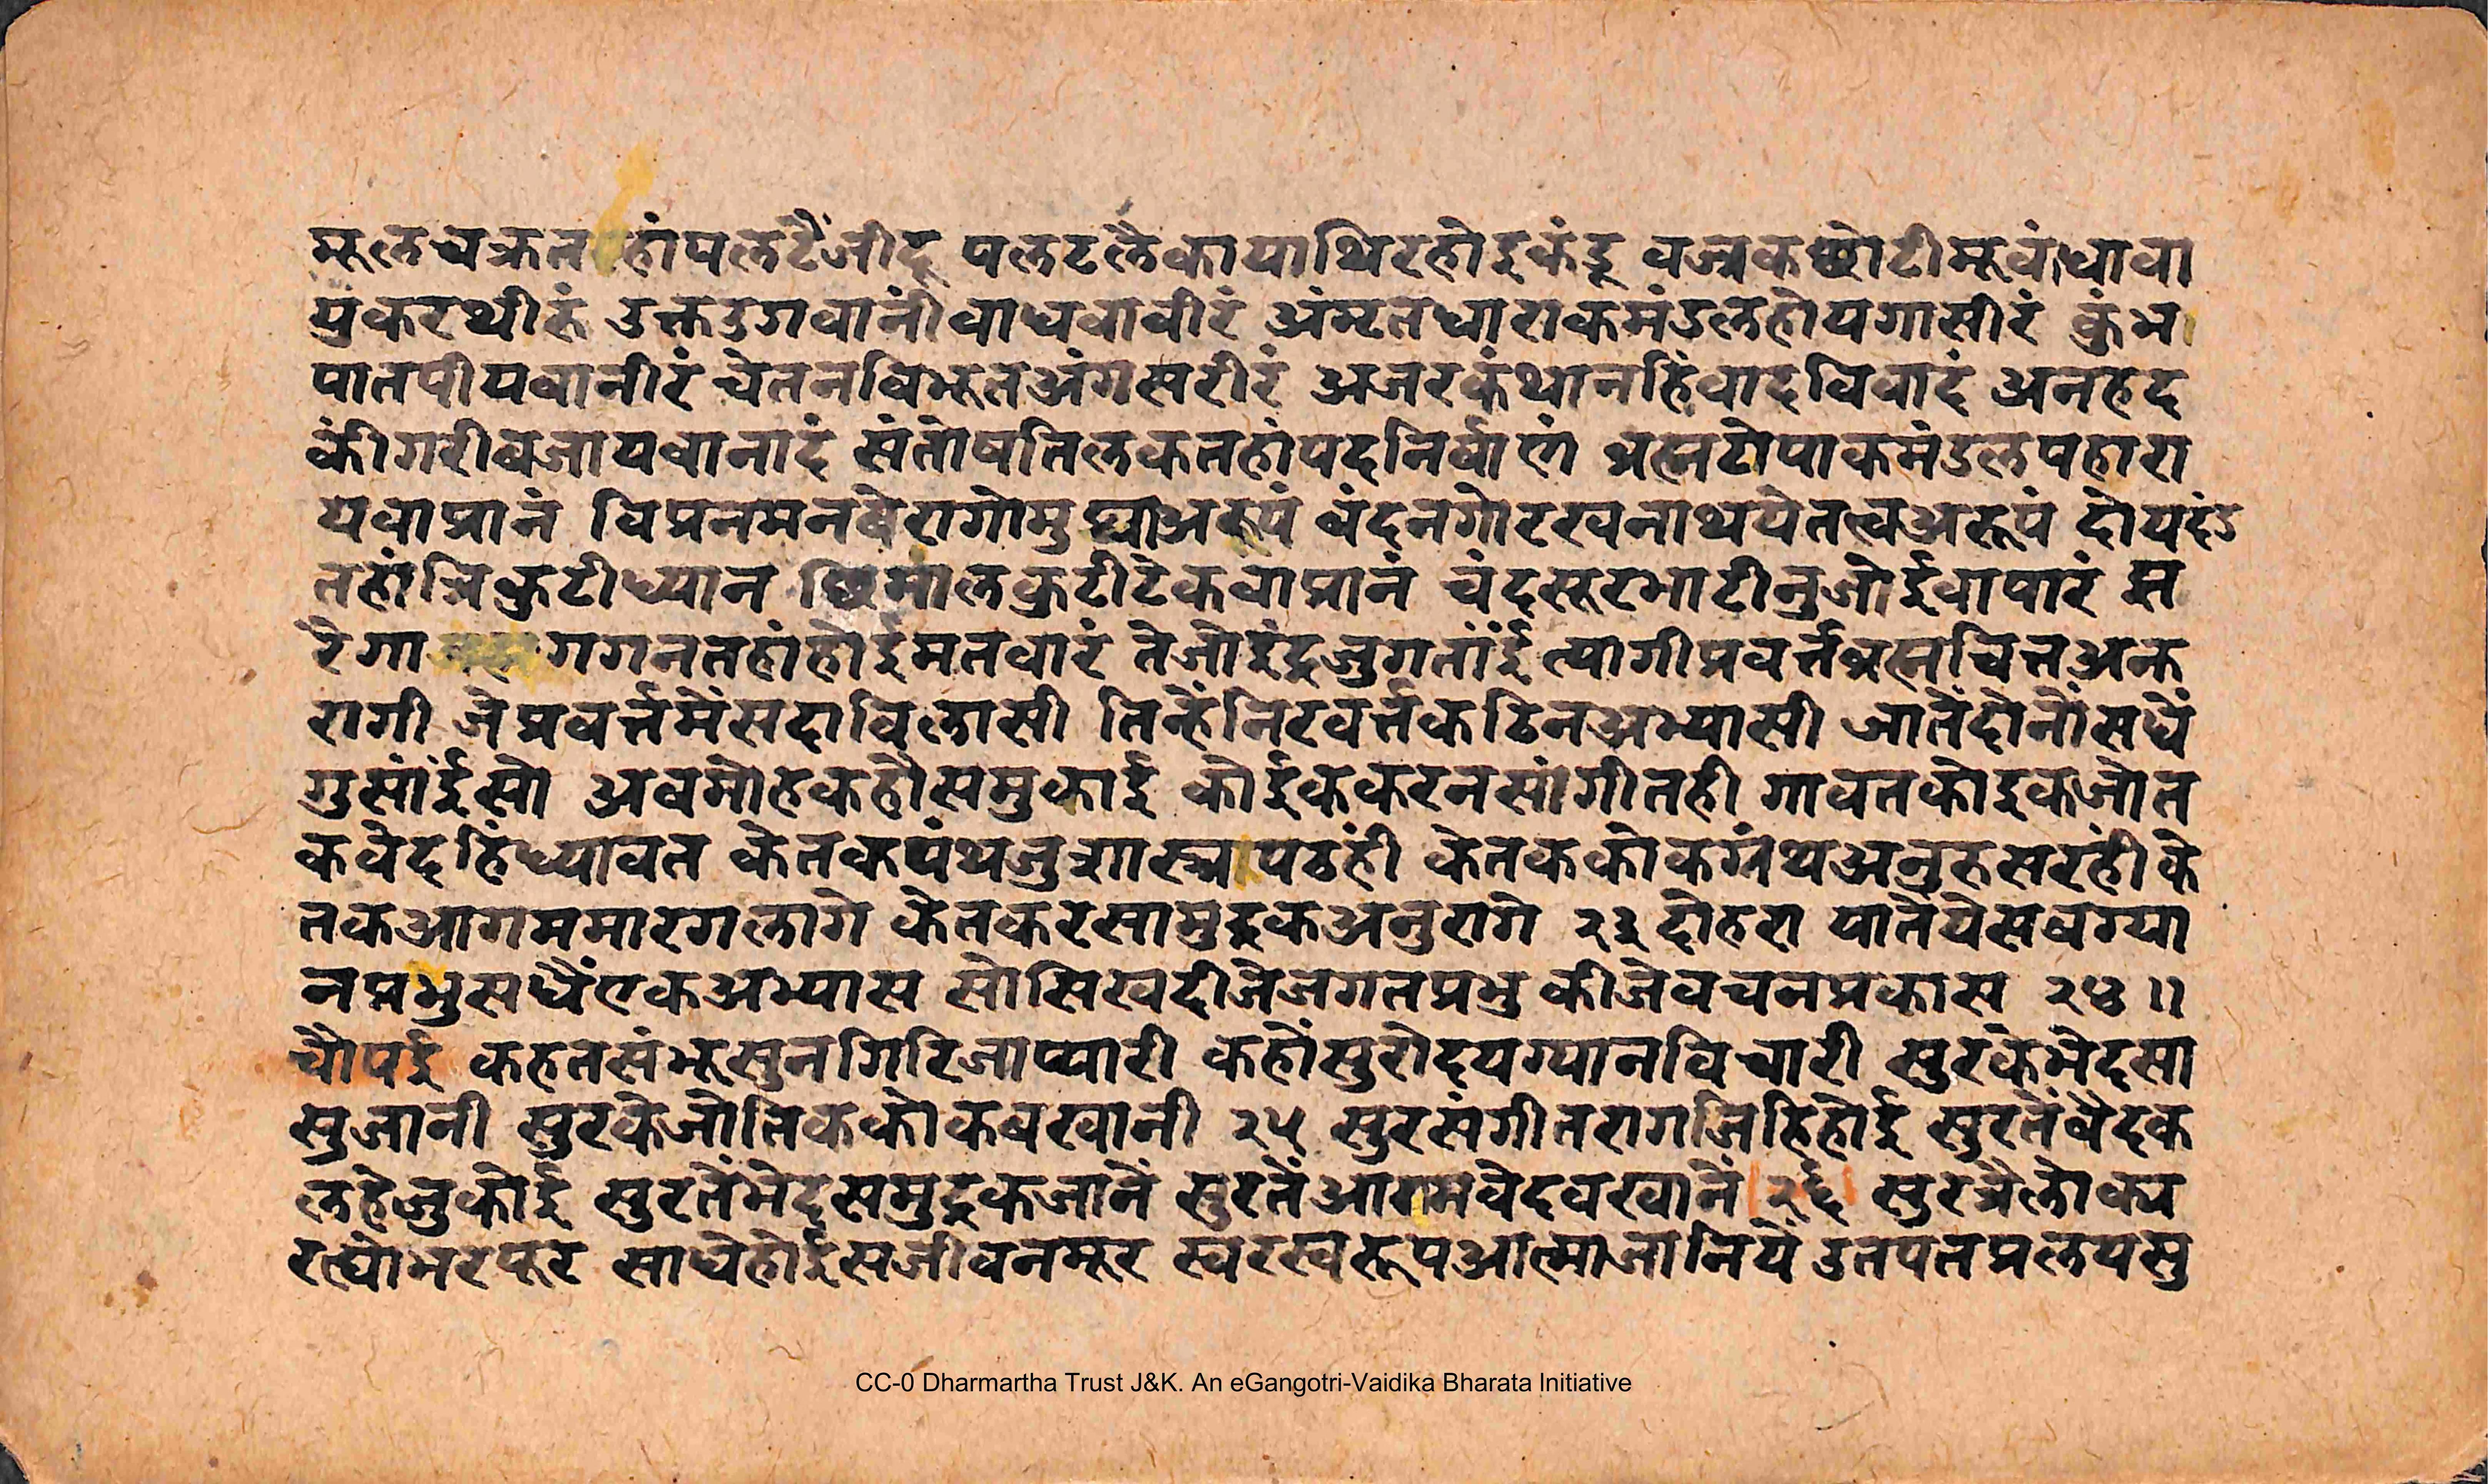 मूलचक्रत हांपलटैजींदू पलटलैकायाथिरहोइकंदू वज्रकछोटीमूवंधावा
युकरथीरूं उक्तउगवांनींवाघवावीरं अंमृतधाराकमंडलहोयगासीरं कुंभ
पातपीयवानीरं चेतनविभूतअंगसरीरं अजरकंथानहिंवादविवादं अनहद
कींगरीबजायवानादं संतोषतिलकतहांपदनिर्वाणं ब्रह्मटोपाकमंडलपहारा
यवाप्रानं विप्रनमनबैरागोमु अरूपं वंदनगोरखनाथयेतत्वअरूपं दोयदंड
तहांत्रिकुटीध्यान मालकुटीटेकवाप्रानं चंदसूरभाटीनुजोईवापारं
रेगा गगनतहांहोईमतवारं तेजोइंद्रजुगतांंईत्यागीप्रवर्त्तब्रह्मचित्तअन्त
रागी जेप्रवर्त्तमैंसदाविलासी तिन्हैंनिरवर्त्तकठिनअभ्यासी जातैंदोनोंसधैं
गुसांईसो अवमोहकहौसमुकाई कोईककरनसांगीतही गावतकोइकजोत
कवेदहिंध्यावत केतकपंथजुशास्त्रापठंही केतककोकग्रंथअनुहसरंहीके
तकआगममारगलागे केतकरसामुद्रकअनुरागे २३ दोहरा यातेयेसवग्या
नप्रभुसधैंएकअभ्यास सोसिखदीजैजगतप्रभु कीजेवचनप्रकास २४ ॥
चौपई कहतसंभूसुनगिरिजाप्यारी कहौंसुरोदयग्यानविचारी सुरकेभेदसा
सुजानी सुरकेजोतिककोकबखानी २५ सुरसंगीतरागजिहिहोई सुरतेंवैदक
लहैजुकोई सुरतेंभेदसमुद्रकजानें सुरतेंआगमवेदवखानें २६ सुरत्रैलोक्य
रह्योभरपूर साधेहोईसजीवनमूर स्वरस्वरूपआत्माजानिये उतपतप्रलयसु
CC-0 Dharmartha Trust J&K. An eGangotri-Vaidika Bharata Initiative